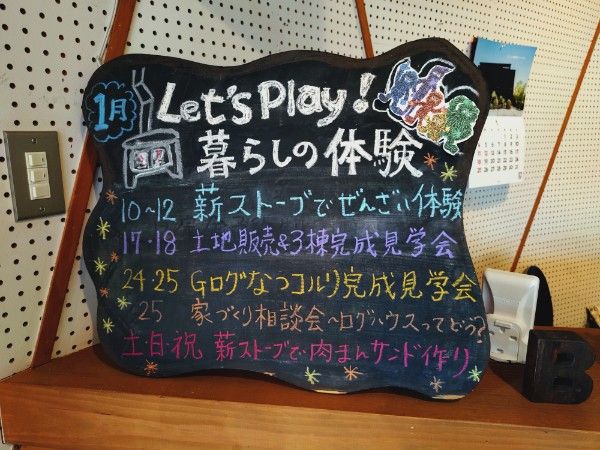 1月
Let's Play!
暮らしの体験
10~12 薪ストーブでぜんざい体験
17・18 土地販売&3棟完成見学会
24 25 Gログなつコルリ完成見学会
25 家づくり相談会~ログハウスってどう?
土日祝 薪ストーブで肉まんサンド作り
B